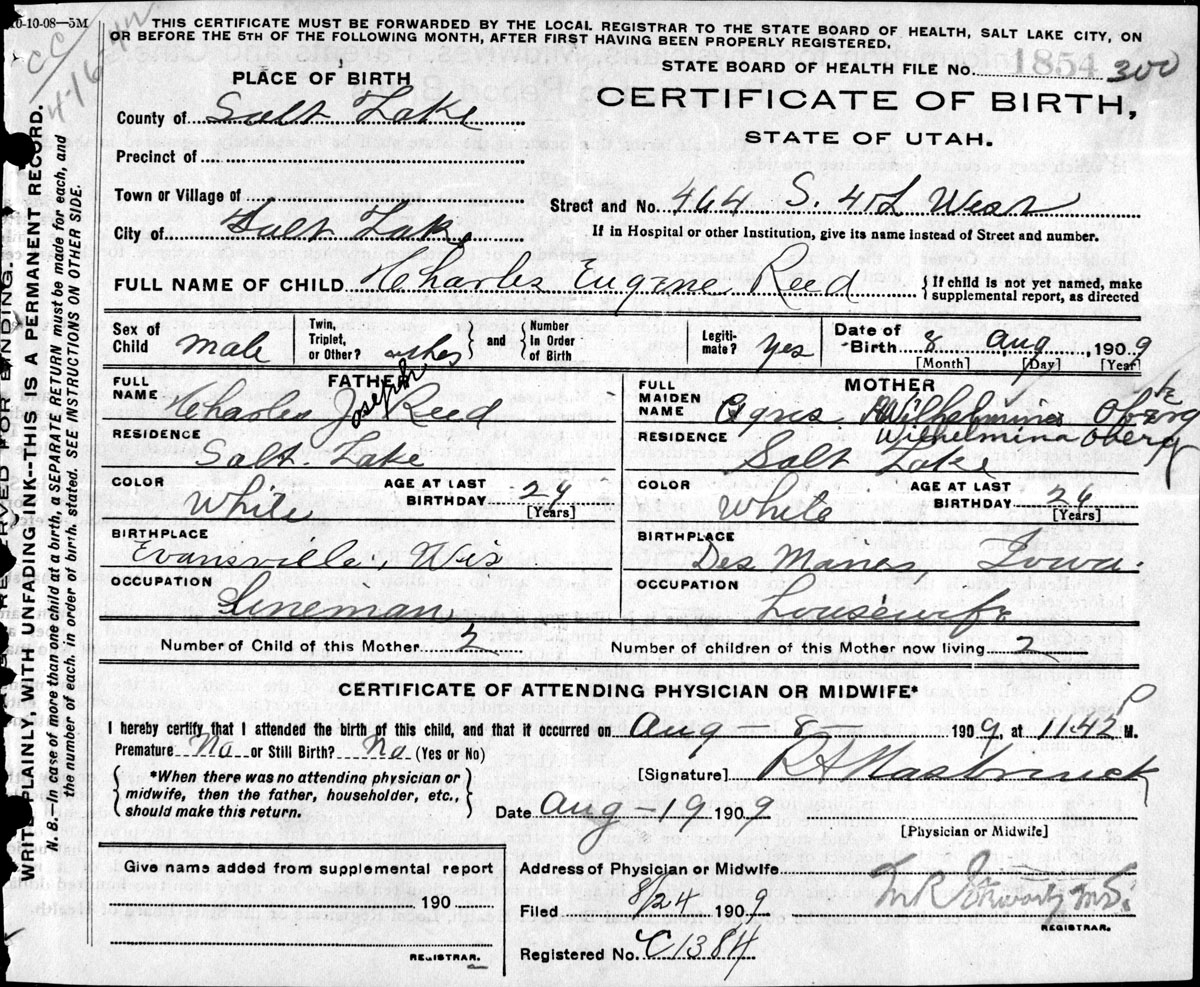 10-10-08—5M
THIS CERTIFICATE MUST BE FORWARDED BY THE LOCAL REGISTRAR TO THE STATE BOARD OF HEALTH, SALT LAKE CITY, ON
OR BEFORE THE 5TH OF THE FOLLOWING MONTH, AFTER FIRST HAVING BEEN PROPERLY REGISTERED.
CC
4-16
STATE BOARD OF HEALTH FILE No. 1854 300
CERTIFICATE OF BIRTH,
STATE OF UTAH.
PLACE OF BIRTH
County of Salt Lake
Precinct of
Town or Village of
City of Salt Lake
Street and No. 464 S. 4th West
If in Hospital or other Institution, give its name instead of Street and number.
FULL NAME OF CHILD Charles Eugene Reed
{If child is not yet named, make
supplemental report, as directed
Sex of Child male
Twin, Triplet, or Other?
and
{Number In Order of Birth
Legitimate? Yes
Date of Birth 8 Aug, 1909
[Month] [Day] [Year]
FATHER
FULL NAME Charles Joseph Reed
RESIDENCE
Salt Lake
COLOR White
AGE AT LAST BIRTHDAY 24
[Years]
BIRTHPLACE
Evansville, Wis
OCCUPATION
Lineman
MOTHER
FULL MAIDEN NAME Agnes Wilhelmina Oberg
Wilhelmina Oberg
RESIDENCE
Salt Lake
COLOR White
AGE AT LAST BIRTHDAY 24
[Years]
BIRTHPLACE
Des Moines Iowa.
OCCUPATION
Housewife
Number of Child of this Mother 2
Number of children of this Mother now living 2
CERTIFICATE OF ATTENDING PHYSICIAN OR MIDWIFE*
I hereby certify that I attended the birth of this child, and that it occurred on Aug — 8 — 1909, at 11.42 P M.
Premature No or Still Birth? No (Yes or No)
{*When there was no attending physician or
midwife, then the father, householder, etc.,
should make this return.}
[Signature] R A Hasbrouck
Date Aug — 19 1909
[Physician or Midwife]
Give name added from supplemental report
190
REGISTRAR.
Address of Physician or Midwife
Filed 8/24 1909
M.D.
REGISTRAR.
Registered No. C1384
RESERVED FOR BINDING.
WRITE PLAINLY, WITH UNFADING INK--THIS IS A PERMANENT RECORD.
N. B.—In case of more than one child at a birth, a SEPARATE RETURN must be made for each, and
the number of each, in order of birth, stated. SEE INSTRUCTIONS ON OTHER SIDE.